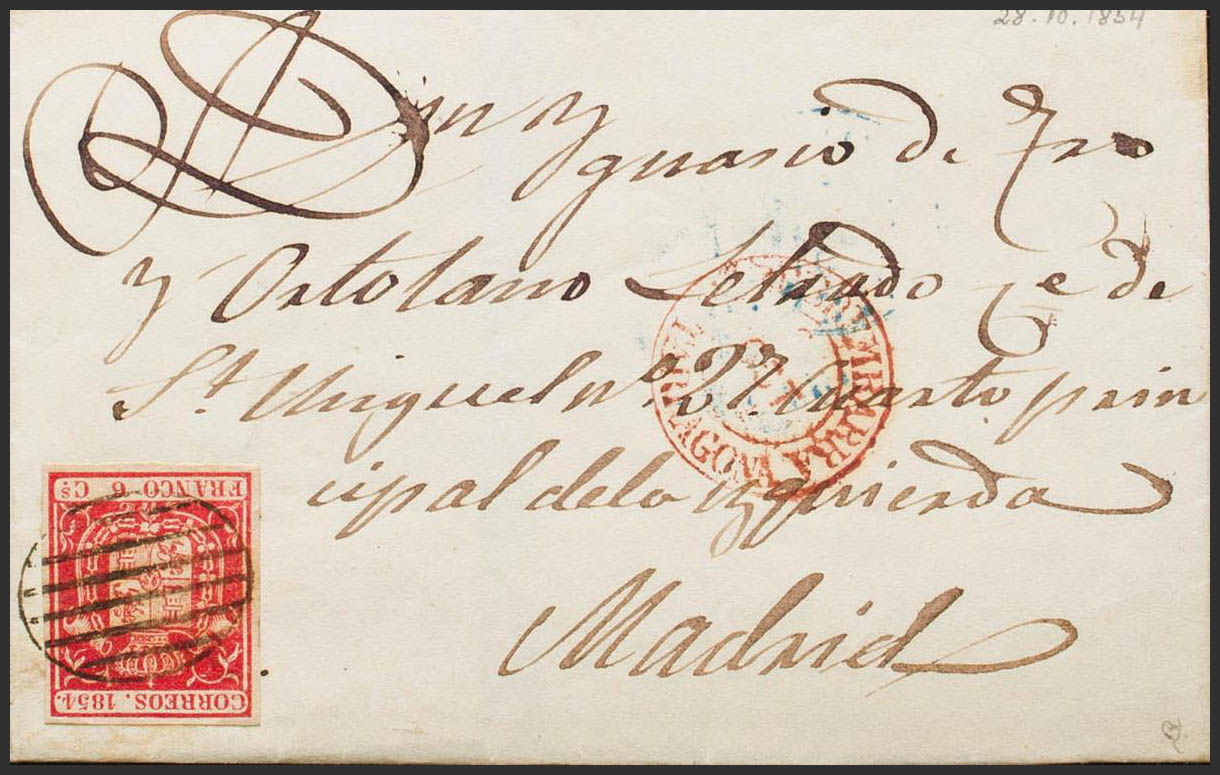 28.10.1854
Ygnacio de
y Ortolano Letrado de
St. Miguel nº 27. cuarto prin
cipal de la yzquierda
Madrid
FRANCO 6 Cs.
CORREOS. 1854.